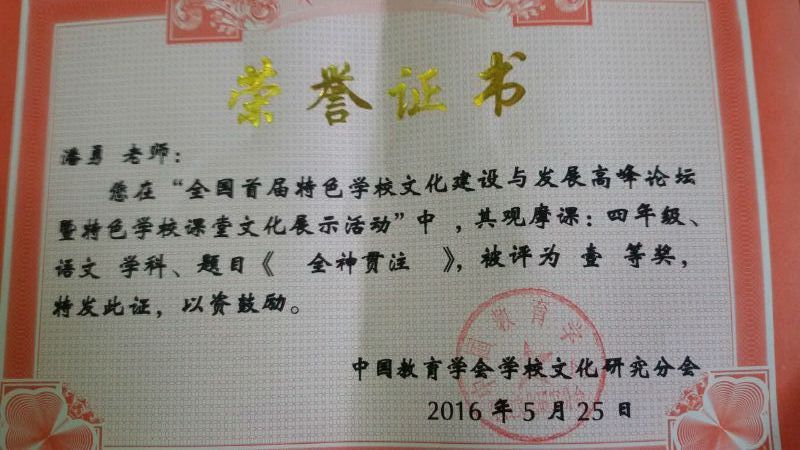 荣誉证书
潘勇 老师:
您在“全国首届特色学校文化建设与发展高峰论坛
暨特色学校课堂文化展示活动”中 ,其观摩课:四年级、
语文 学科、题目《 全神贯注 》,被评为 壹 等奖,
特发此证,以资鼓励。
中国教育学会学校文化研究分会
2016 年 5 月 25 日